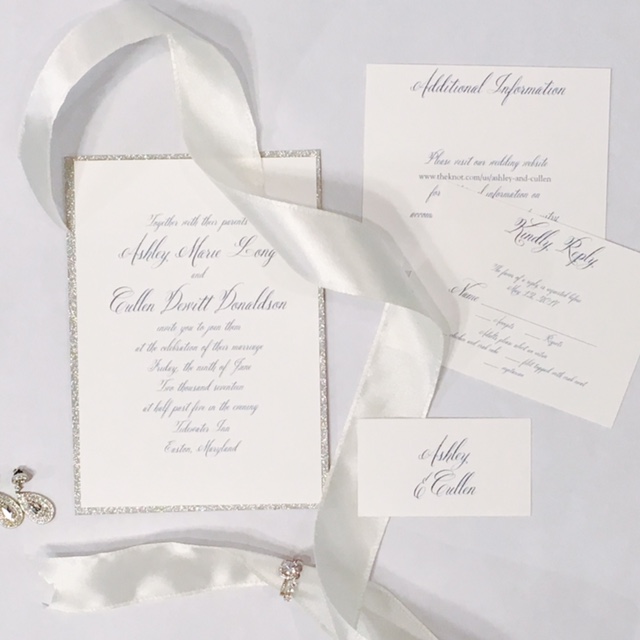 Together with their parents
Ashley Marie Long
and
Cullen Dewitt Donaldson
invite you to join them
at the celebration of their marriage
Friday, the ninth of June
Two thousand seventeen
at half past five in the evening
Tidewater Inn
Easton, Maryland
Additional Information
Please visit our wedding website
www.theknot.com/us/ashley-and-cullen
for information on
Kindly Reply
The favor of a reply is requested before
May 12th, 2017
Name
Accepts Regrets
Kindly please select an entree
vegetarian
Ashley
& Cullen